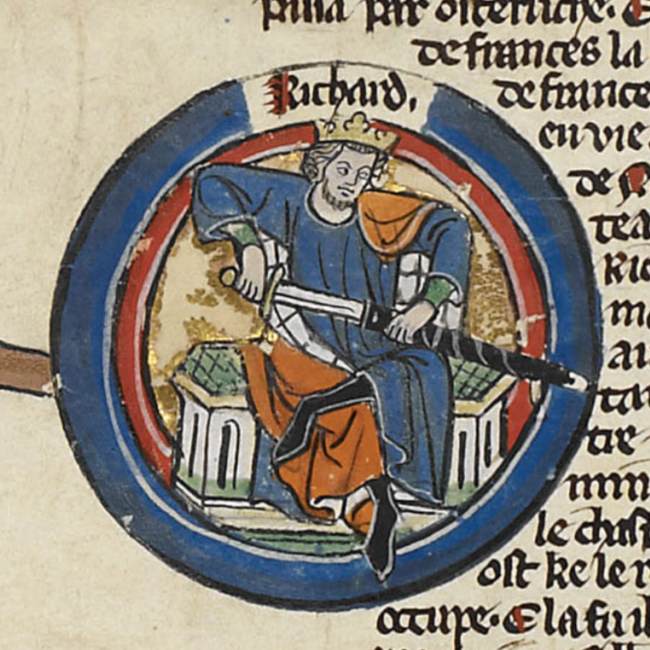 par osteriiche. E
de frances la
Richard,
de france
en vie
de
tea
Ric
ma
au
ta
tre
le chas
ost ke le r
occupe. E la fu il